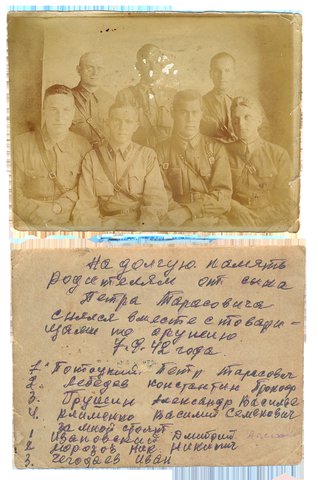 На долгую память
родителям от сына
Петра Тарасовича
снялся вместе с товари-
щами по оружию
7.9.42 года
1. Потоцкий Петр Тарасович
2. Лебедев Константин
3. Грушин Александр Василев
4. Клименко Василий Семенович
за мной стоят
1 Ивановский Дмитрий
2 Морозов Ник Никитич
3. Чегодаев Иван